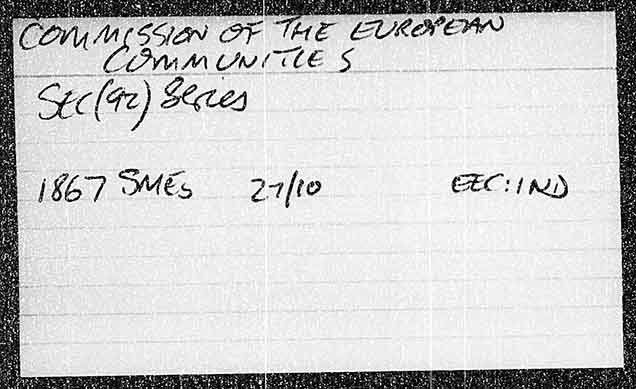 COMMISSION OF THE EUROPEAN
COMMUNITIES
SEC(92) Series
1867 SMEs 27/10 EEC:IND